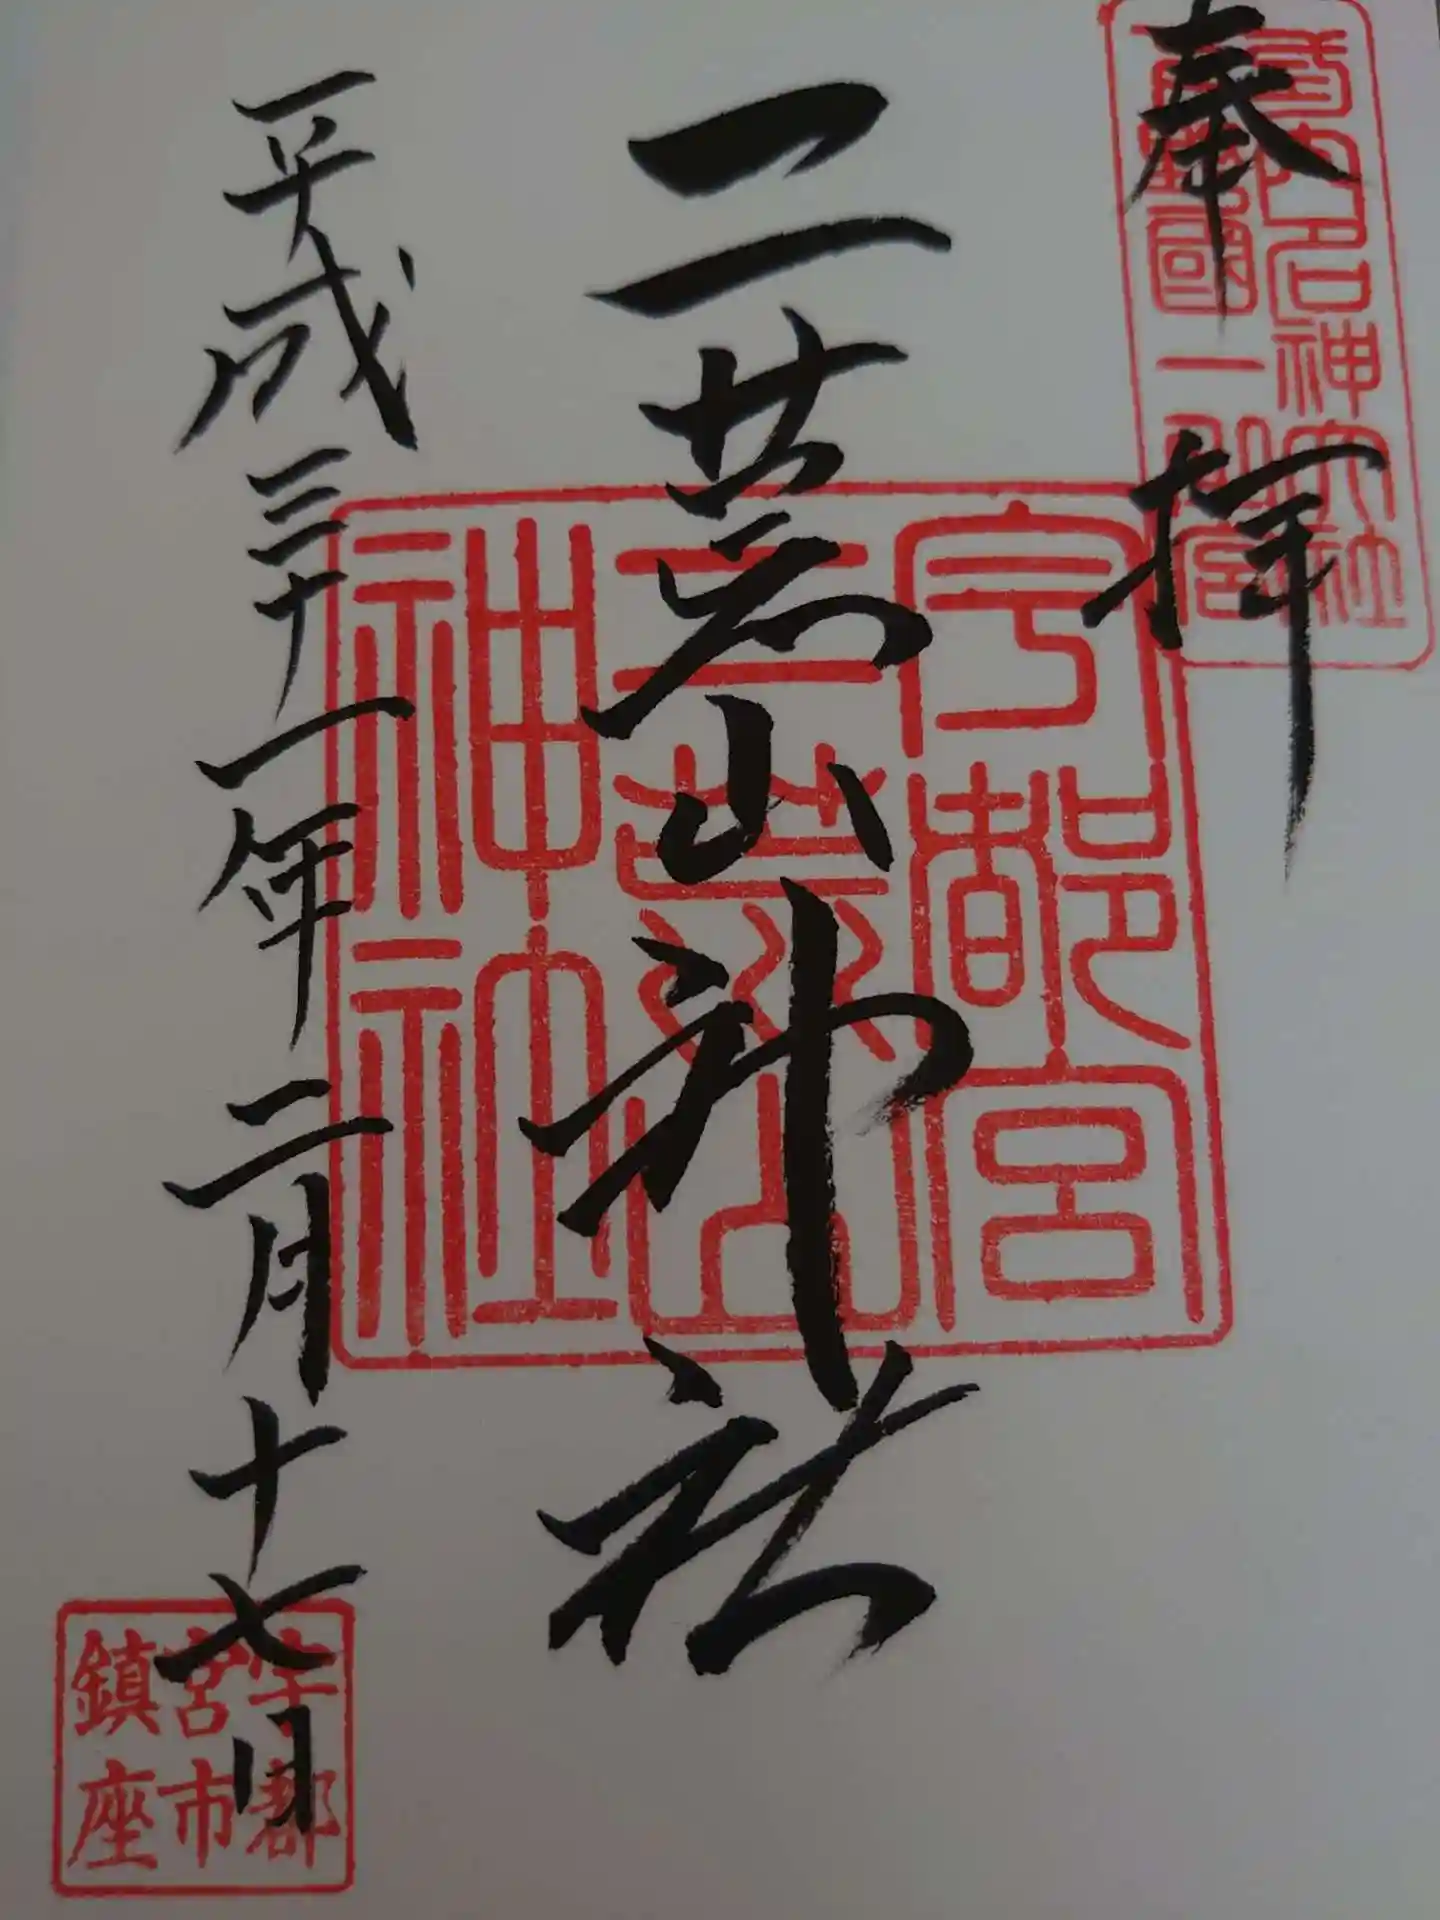 奉拝
式内名神大社
下野國一之宮
二荒山神社
宇都宮
二荒山
神社
平成三十一年二月十七日
宇都
宮市
鎮座